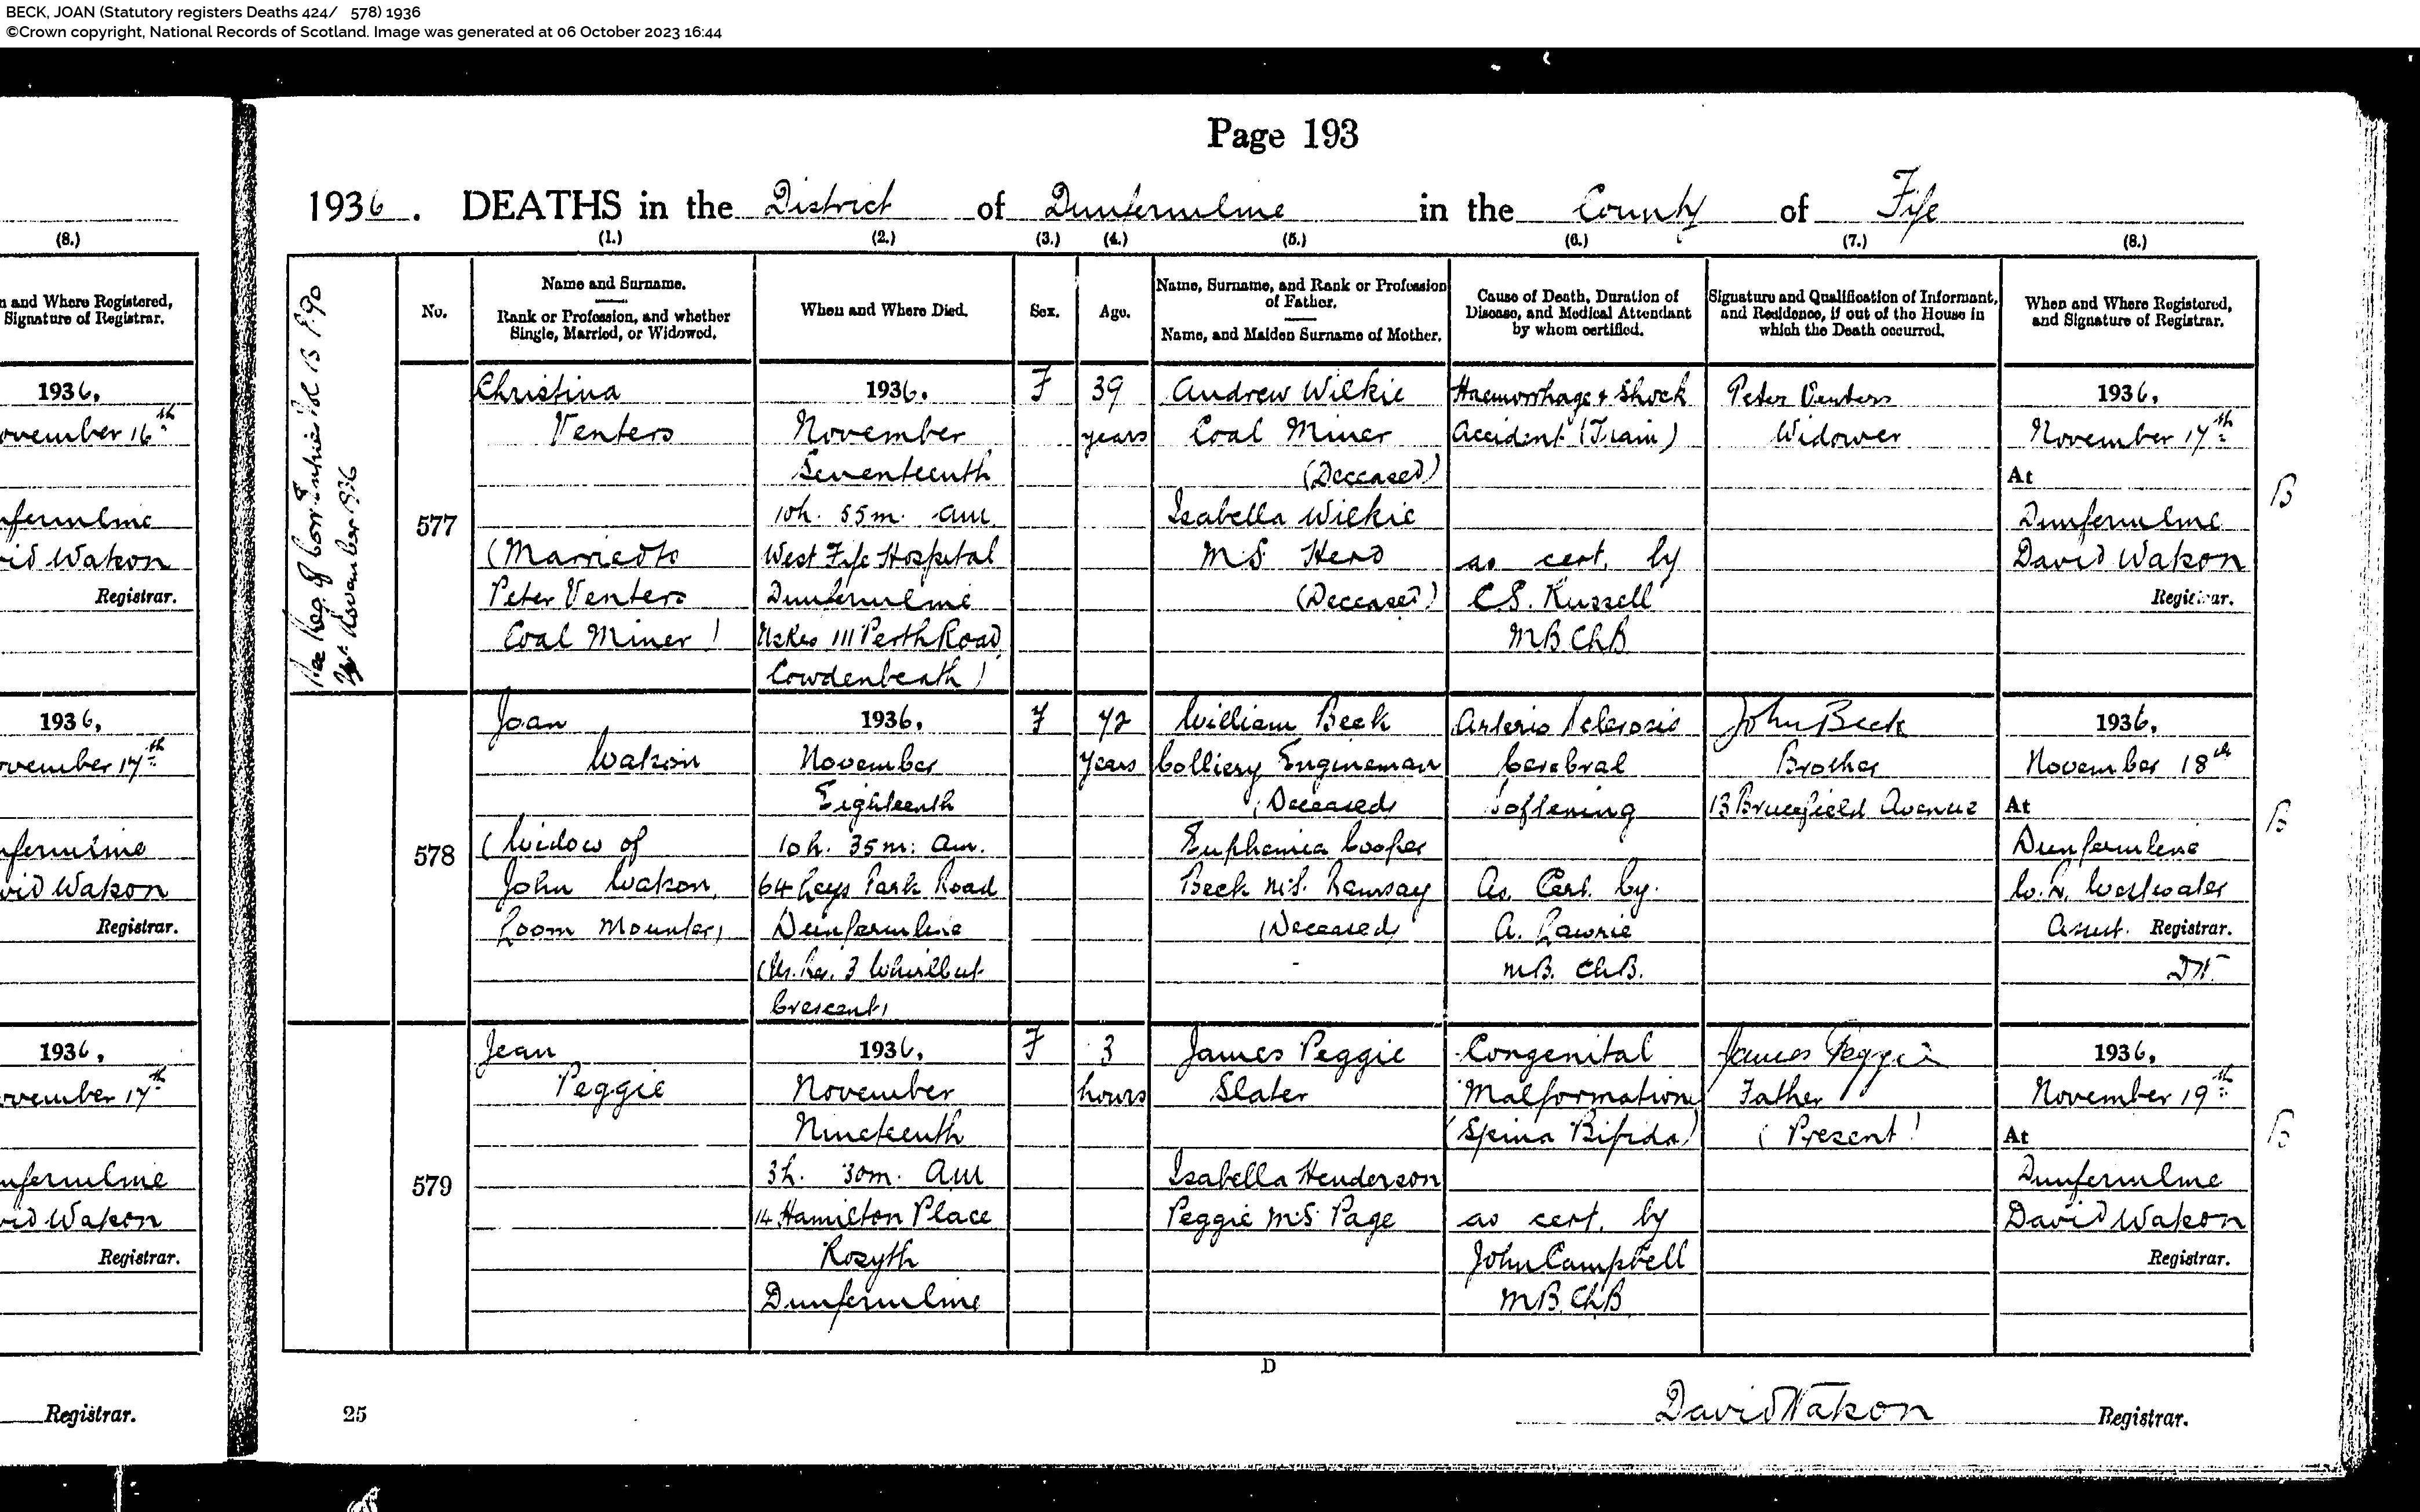 BECK, JOAN (Statutory registers Deaths 424/ 578) 1936
©Crown copyright, National Records of Scotland. Image was generated at 06 October 2023 16:44
Page 193
1936. DEATHS in the District of Dunfermline in the County of Fife
(8.)
n and Where Registered,
Signature of Registrar.
1936,
ovember 16th
nfermline
vid Watson
Registrar.
1936,
ovember 17th
nfermline
vid Watson
Registrar.
1936,
ovember 17th
nfermline
vid Watson
Registrar.
Registrar.
(1.) (2.) (3.) (4.) (5.) (6.) (7.) (8.)
No.
Name and Surname.
Rank or Profession, and whether
Single, Married, or Widowed.
When and Where Died.
Sex.
Age.
Name, Surname, and Rank or Profession
of Father.
Name, and Maiden Surname of Mother.
Cause of Death, Duration of
Disease, and Medical Attendant
by whom certified.
Signature and Qualification of Informant,
and Residence, if out of the House in
which the Death occurred.
When and Where Registered,
and Signature of Registrar.
See Reg. of Corr. Entries Vol 13 P.90
November 1936
577
Christina
Venters
(Married to
Peter Venters
Coal Miner)
1936.
November
Seventeenth
10h. 55m. am.
West Fife Hospital
Dunfermline
111 Perth Road
Cowdenbeath)
F
39
years
Andrew Wilkie
Coal Miner
(Deceased)
Isabella Wilkie
M.S. Herd
(Deceased)
Haemorrhage & Shock
Accident (Train)
as cert. by
C.S. Russell
MB ChB
Peter Venters
Widower
1936,
November 17th
At
Dunfermline
David Watson
Registrar.
B
578
Joan
Watson
(Widow of
John Watson,
Loom Mounter)
1936,
November
Eighteenth
10h. 35m. am.
64 Leys Park Road
Dunfermline
(Us. Res. 3 Whirlbut
Crescent)
F
72
years
William Beck
Colliery Engineman
(Deceased)
Euphemia Cooper
Beck m.s. Ramsay
(Deceased)
Arterio Sclerosis
Cerebral
Softening
As Cert. by.
A. Lawrie
M.B. Ch.B.
John Beck
Brother
13 Brucefield Avenue
1936,
November 18th
At
Dunfermline
Westwater
Asst. Registrar.
D.W.
B
579
Jean
Peggie
1936,
November
Nineteenth
3h. 30m. AM
14 Hamilton Place
Rosyth
Dunfermline
F
3
hours
James Peggie
Slater
Isabella Henderson
Peggie M.S. Page
Congenital
Malformation
(Spina Bifida)
as cert. by
John Campbell
M.B. Ch.B
James Peggie
Father
(Present)
1936,
November 19th
At
Dunfermline
David Watson
Registrar.
B
D
25
David Watson Registrar.